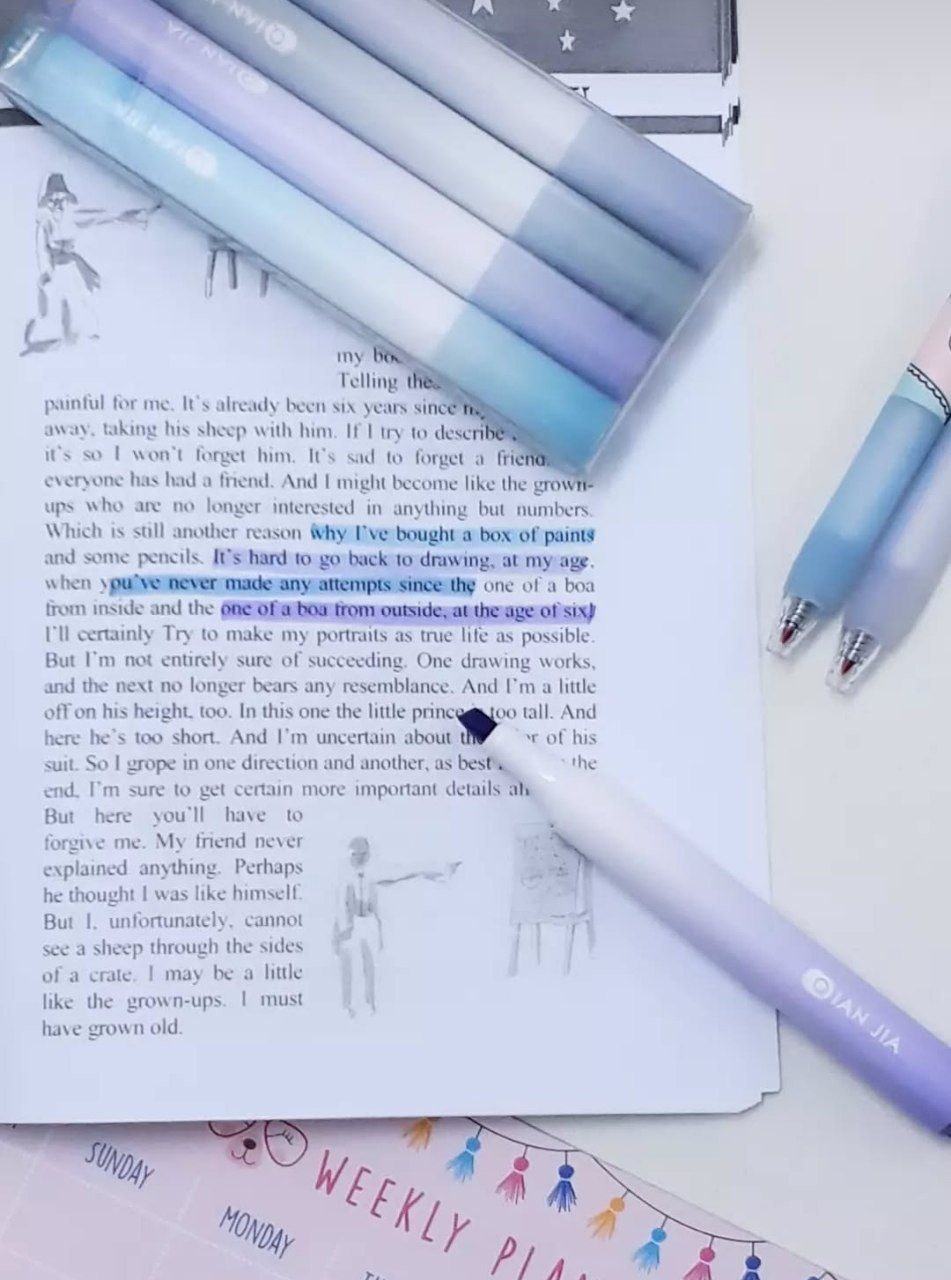 QIAN JIA
my
Telling
painful for me. It's already been six years since
away, taking his sheep with him. If I try to describe
it's so I won't forget him. It's sad to forget a friend.
everyone has had a friend. And I might become like the grown-
ups who are no longer interested in anything but numbers.
Which is still another reason why I've bought a box of paints
and some pencils. It's hard to go back to drawing, at my age,
when you've never made any attempts since the one of a boa
from inside and the one of a boa from outside, at the age of six!
I'll certainly Try to make my portraits as true life as possible.
But I'm not entirely sure of succeeding. One drawing works,
and the next no longer bears any resemblance. And I'm a little
off on his height, too. In this one the little prince is too tall. And
here he's too short. And I'm uncertain about of his
suit. So I grope in one direction and another, as best the
end, I'm sure to get certain more important details
But here you'll have to
forgive me. My friend never
explained anything. Perhaps
he thought I was like himself.
But I, unfortunately, cannot
see a sheep through the sides
of a crate. I may be a little
like the grown-ups. I must
have grown old.
QIAN JIA
SUNDAY
MONDAY
WEEKLY